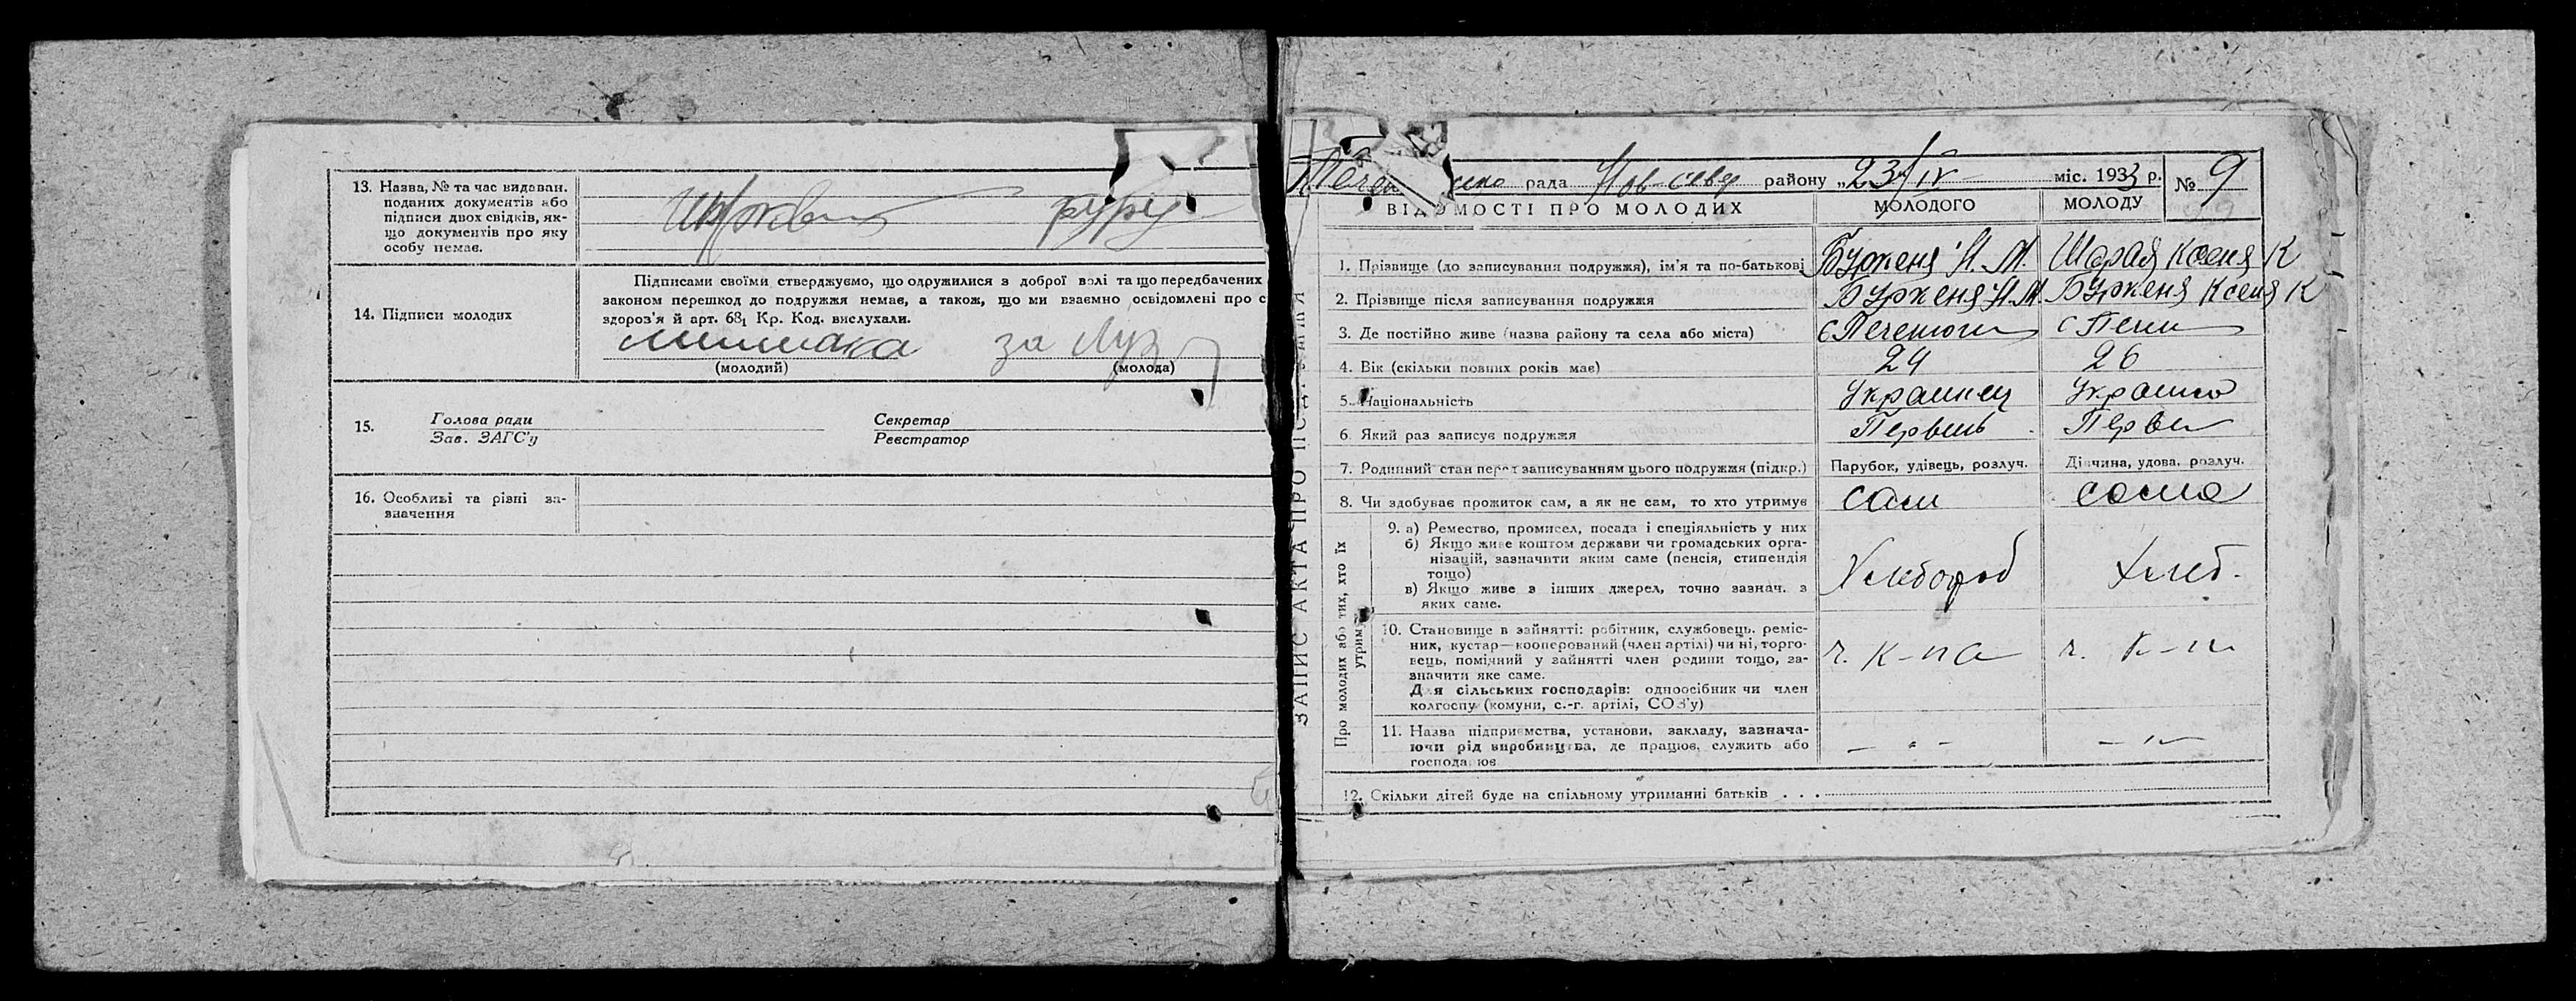 13. Назва, № та час видаван.
поданих документів або
підписи двох свідків, як-
що документів про яку
особу немає.
14. Підписи молодих
Підписами своїми стверджуємо, що одружилися з доброї волі та що передбачених
законом перешкод до подружжя немає, а також, що ми взаємно освідомлені про с
здоров'я й арт. 68₁ Кр. Код. вислухали.
за
(молодий) (молода)
15. Голова ради Секретар
Зав. ЗАГС'у Реєстратор
16. Особливі та різні за-
значення
ЗАПИС АКТА ПРО
рада Нов-Север району „23/IV міс. 1933 р. № 9
ВІДОМОСТІ ПРО МОЛОДИХ МОЛОДОГО МОЛОДУ
1. Прізвище (до записування подружжя), ім'я та по-батькові Бурженя Н. М. Шарая Ксеня К
2. Прізвище після записування подружжя Бурженя Н. М. Бурженя Ксеня К
3. Де постійно живе (назва району та села або міста) с Печенюги с Печен
4. Вік (скільки повних років має) 24 26
5. Національність Украинец Украин
6. Який раз записує подружжя Первый Перв
7. Родинний стан перед записуванням цього подружжя (підкр.) Парубок, удівець, розлуч. Дівчина, удова, розлуч.
8. Чи здобуває прожиток сам, а як не сам, то хто утримує сам сама
Про молодих або тих, хто їх
утримує
9. а) Ремество, промисел, посада і спеціяльність у них
б) Якщо живе коштом держави чи громадських орга-
нізацій, зазначити яким саме (пенсія, стипендія
тощо)
в) Якщо живе з інших джерел, точно зазнач. з
яких саме.
Хлебороб Хлеб.
10. Становище в зайнятті: робітник, службовець, реміс-
ник, кустар—кооперований (член артілі) чи ні, торго-
вець, помічний у зайнятті член родини тощо, за-
значити яке саме.
Для сільських господарів: одноосібник чи член
колгоспу (комуни, с.-г. артілі, СОЗ'у)
ч. к-па ч. к-п
11. Назва підприємства, установи, закладу, зазнача-
ючи рід виробництва, де працює, служить або
господарює
— „ — — „ —
12. Скільки дітей буде на спільному утриманні батьків . . .